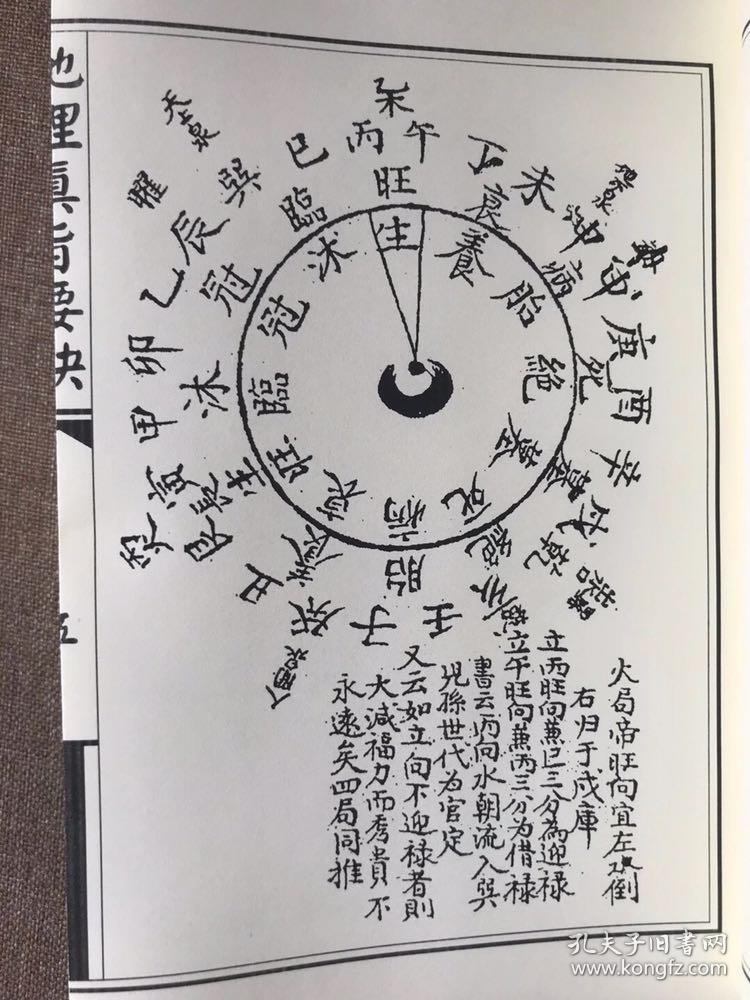 地理真旨要
丙午丁未坤申庚酉辛戌乾亥壬子癸丑艮寅甲卯乙辰巽巳
旺衰病死墓絕胎養生沐冠臨
生養胎絕墓死病衰旺臨冠沐
曜
火局帝旺向宜左水倒
右归于戍庫
立丙旺向兼巳三分為迎禄
立午旺向兼丙三分为借禄
書云丙向水朝流入巽
兒孫世代为官定
又云如立向不迎禄者則
大減福力而秀貴不
永遠矣四局同推
五
孔夫子旧书网
www.kongfz.com